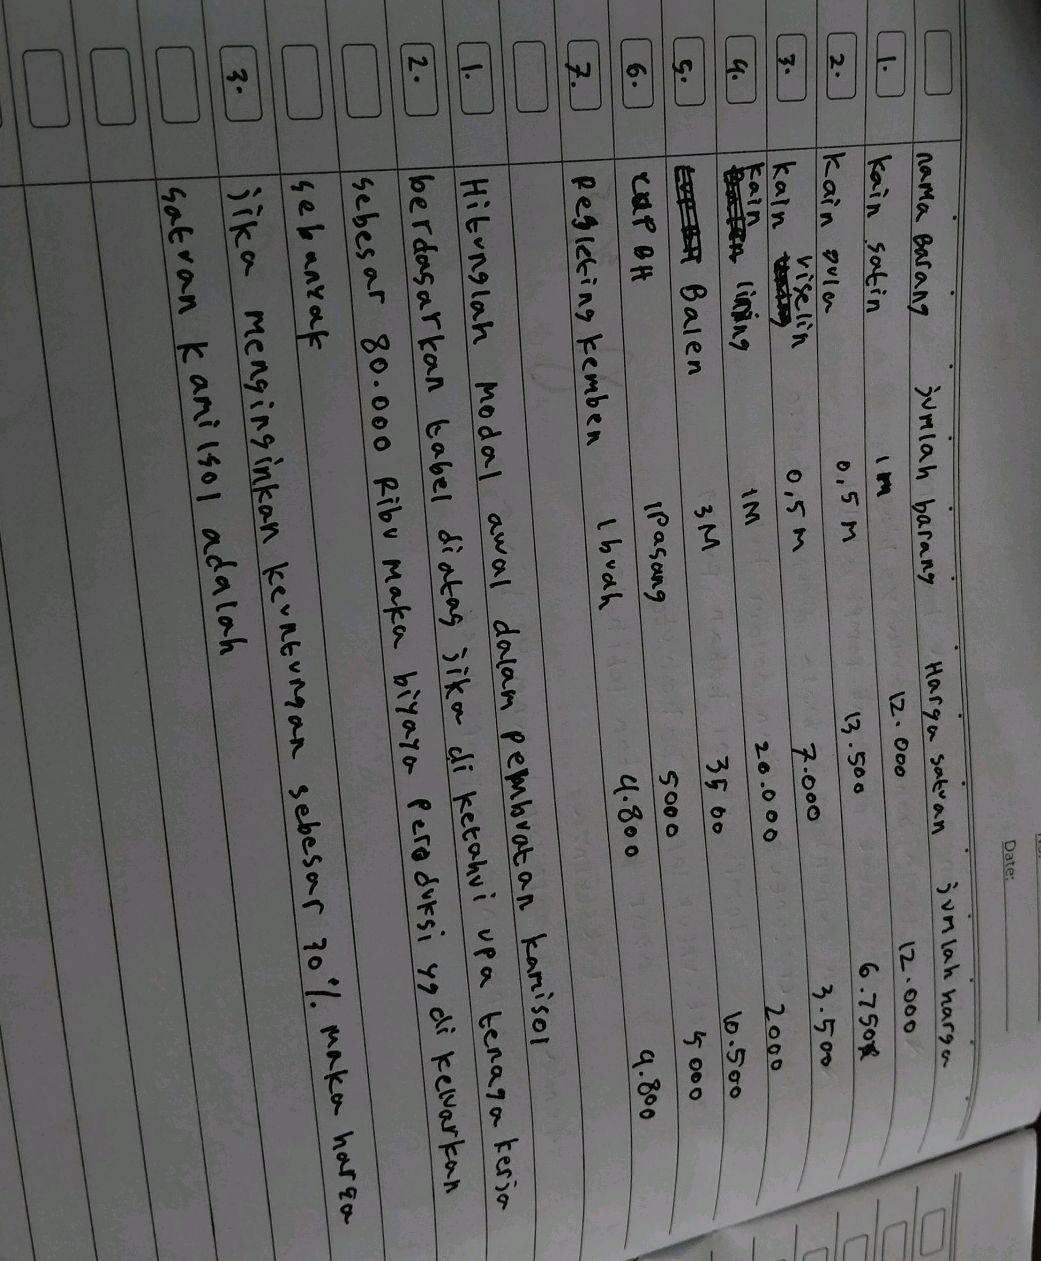 Date:
nama Barang jumlah barang Harga satuan jumlah harga
1. Kain satin 1 m 12.000 12.000
2. Kain gula 0,5 M 13.500 6.750
3. Kain viselin 0,5 m 7.000 3.500
4. Kain lining 1M 20.000 2000
5. Balen 3M 3500 10.500
6. CUP BH 1 Pasang 5000 5000
7. Resleting kemben 1 buah 4.800 4.800
1. Hitunglah modal awal dalam pembuatan kamisol
2. berdasarkan tabel diatas jika di ketahui upa tenaga kerja
sebesar 80.000 Ribu maka biyaya peroduksi yg di keluarkan
sebanyak
3. jika menginginkan keuntungan sebesar 30% maka harga
satuan kamilsol adalah